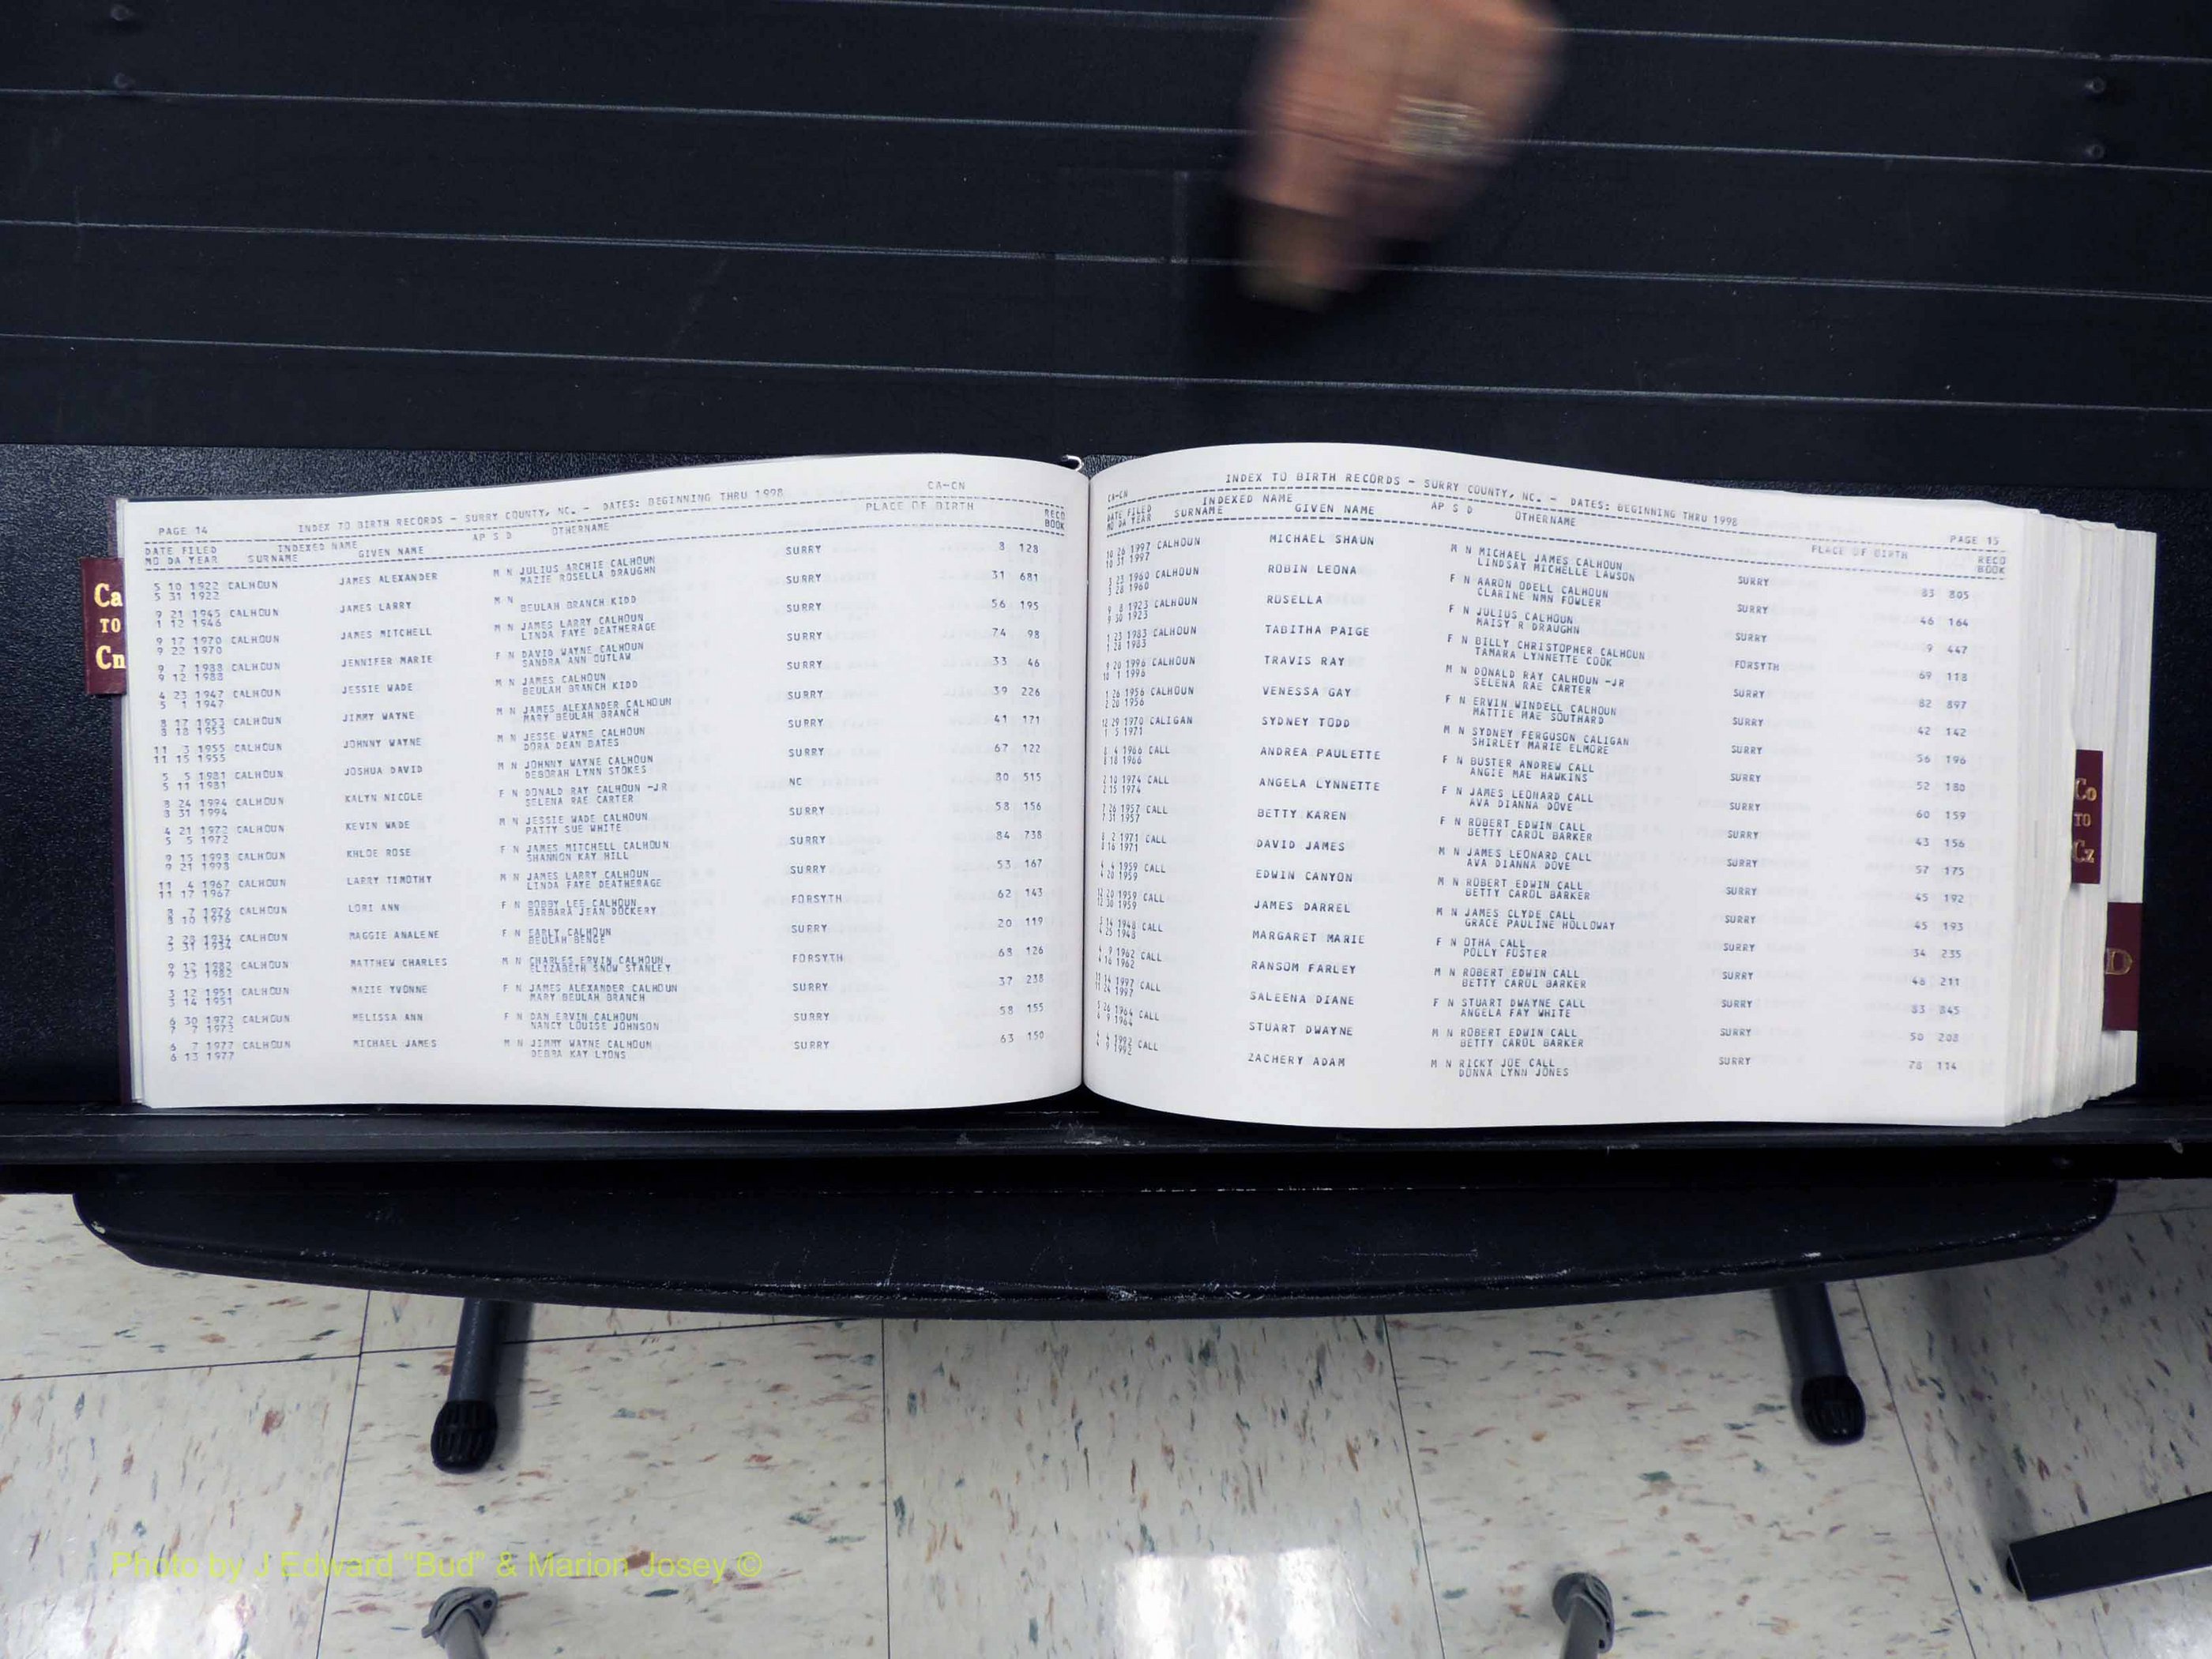 PAGE 14 INDEX TO BIRTH RECORDS - SURRY COUNTY, NC. - DATES: BEGINNING THRU 1998 CA-CN
DATE FILED INDEXED NAME AP S D OTHERNAME PLACE OF BIRTH RECD
MO DA YEAR SURNAME GIVEN NAME BOOK
5 10 1922 CALHOUN JAMES ALEXANDER M N JULIUS ARCHIE CALHOUN SURRY 8 128
5 31 1922 MAZIE ROSELLA DRAUGHN
9 21 1945 CALHOUN JAMES LARRY M N SURRY 31 681
1 12 1946 BEULAH BRANCH KIDD
9 17 1970 CALHOUN JAMES MITCHELL M N JAMES LARRY CALHOUN SURRY 56 195
9 22 1970 LINDA FAYE DEATHERAGE
9 7 1988 CALHOUN JENNIFER MARIE F N DAVID WAYNE CALHOUN SURRY 74 98
9 12 1988 SANDRA ANN OUTLAW
4 23 1947 CALHOUN JESSIE WADE M N JAMES CALHOUN SURRY 33 46
5 1 1947 BEULAH BRANCH KIDD
8 17 1953 CALHOUN JIMMY WAYNE M N JAMES ALEXANDER CALHOUN SURRY 39 226
8 18 1953 MARY BEULAH BRANCH
11 3 1955 CALHOUN JOHNNY WAYNE M N JESSE WAYNE CALHOUN SURRY 41 171
11 15 1955 DORA DEAN BATES
5 5 1981 CALHOUN JOSHUA DAVID M N JOHNNY WAYNE CALHOUN SURRY 67 122
5 11 1981 DEBORAH LYNN STOKES
8 24 1994 CALHOUN KALYN NICOLE F N DONALD RAY CALHOUN -JR NC 80 515
8 31 1994 SELENA RAE CARTER
4 21 1972 CALHOUN KEVIN WADE M N JESSIE WADE CALHOUN SURRY 58 156
5 5 1972 PATTY SUE WHITE
9 15 1998 CALHOUN KHLOE ROSE F N JAMES MITCHELL CALHOUN SURRY 84 738
9 21 1998 SHANNON KAY HILL
11 4 1967 CALHOUN LARRY TIMOTHY M N JAMES LARRY CALHOUN SURRY 53 167
11 17 1967 LINDA FAYE DEATHERAGE
8 7 1976 CALHOUN LORI ANN F N BOBBY LEE CALHOUN FORSYTH 62 143
8 10 1976 BARBARA JEAN DOCKERY
2 28 1934 CALHOUN MAGGIE ANALENE F N EARLY CALHOUN SURRY 20 119
3 31 1934 BEULAH BENGE
9 12 1982 CALHOUN MATTHEW CHARLES M N CHARLES ERVIN CALHOUN FORSYTH 68 126
9 23 1982 ELIZABETH SNOW STANLEY
3 12 1951 CALHOUN MAZIE YVONNE F N JAMES ALEXANDER CALHOUN SURRY 37 238
3 14 1951 MARY BEULAH BRANCH
6 30 1972 CALHOUN MELISSA ANN F N DAN ERVIN CALHOUN SURRY 58 155
7 7 1972 NANCY LOUISE JOHNSON
6 7 1977 CALHOUN MICHAEL JAMES M N JIMMY WAYNE CALHOUN SURRY 63 150
6 13 1977 DEBRA KAY LYONS
CA-CN INDEX TO BIRTH RECORDS - SURRY COUNTY, NC. - DATES: BEGINNING THRU 1998 PAGE 15
DATE FILED INDEXED NAME AP S D OTHERNAME PLACE OF BIRTH RECD
MO DA YEAR SURNAME GIVEN NAME BOOK
10 26 1997 CALHOUN MICHAEL SHAUN M N MICHAEL JAMES CALHOUN SURRY 83 805
10 31 1997 LINDSAY MICHELLE LAWSON
3 23 1960 CALHOUN ROBIN LEONA F N AARON ODELL CALHOUN SURRY 46 164
3 28 1960 CLARINE NMN FOWLER
9 8 1923 CALHOUN ROSELLA F N JULIUS CALHOUN SURRY 9 447
9 30 1923 MAISY R DRAUGHN
1 23 1983 CALHOUN TABITHA PAIGE F N BILLY CHRISTOPHER CALHOUN FORSYTH 69 118
1 28 1983 TAMARA LYNNETTE COOK
9 20 1996 CALHOUN TRAVIS RAY M N DONALD RAY CALHOUN -JR SURRY 82 897
10 1 1996 SELENA RAE CARTER
1 26 1956 CALHOUN VENESSA GAY F N ERVIN WINDELL CALHOUN SURRY 42 142
2 20 1956 MATTIE MAE SOUTHARD
12 29 1970 CALIGAN SYDNEY TODD M N SYDNEY FERGUSON CALIGAN SURRY 56 196
1 5 1971 SHIRLEY MARIE ELMORE
8 4 1966 CALL ANDREA PAULETTE F N BUSTER ANDREW CALL SURRY 52 180
8 18 1966 ANGIE MAE HAWKINS
2 10 1974 CALL ANGELA LYNNETTE F N JAMES LEONARD CALL SURRY 60 159
2 15 1974 AVA DIANNA DOVE
7 26 1957 CALL BETTY KAREN F N ROBERT EDWIN CALL SURRY 43 156
7 31 1957 BETTY CAROL BARKER
8 2 1971 CALL DAVID JAMES M N JAMES LEONARD CALL SURRY 57 175
8 16 1971 AVA DIANNA DOVE
4 4 1959 CALL EDWIN CANYON M N ROBERT EDWIN CALL SURRY 45 192
4 20 1959 BETTY CAROL BARKER
12 20 1959 CALL JAMES DARREL M N JAMES CLYDE CALL SURRY 45 193
12 30 1959 GRACE PAULINE HOLLOWAY
3 14 1948 CALL MARGARET MARIE F N OTHA CALL SURRY 34 235
4 25 1948 POLLY FOSTER
4 9 1962 CALL RANSOM FARLEY M N ROBERT EDWIN CALL SURRY 48 211
4 16 1962 BETTY CAROL BARKER
11 14 1997 CALL SALEENA DIANE F N STUART DWAYNE CALL SURRY 83 845
11 24 1997 ANGELA FAY WHITE
3 26 1964 CALL STUART DWAYNE M N ROBERT EDWIN CALL SURRY 50 208
4 9 1964 BETTY CAROL BARKER
4 4 1992 CALL ZACHERY ADAM M N RICKY JOE CALL SURRY 78 114
4 9 1992 DONNA LYNN JONES
Ca
TO
Cn
Co
TO
Cz
D
Photo by J Edward "Bud" & Marion Josey ©